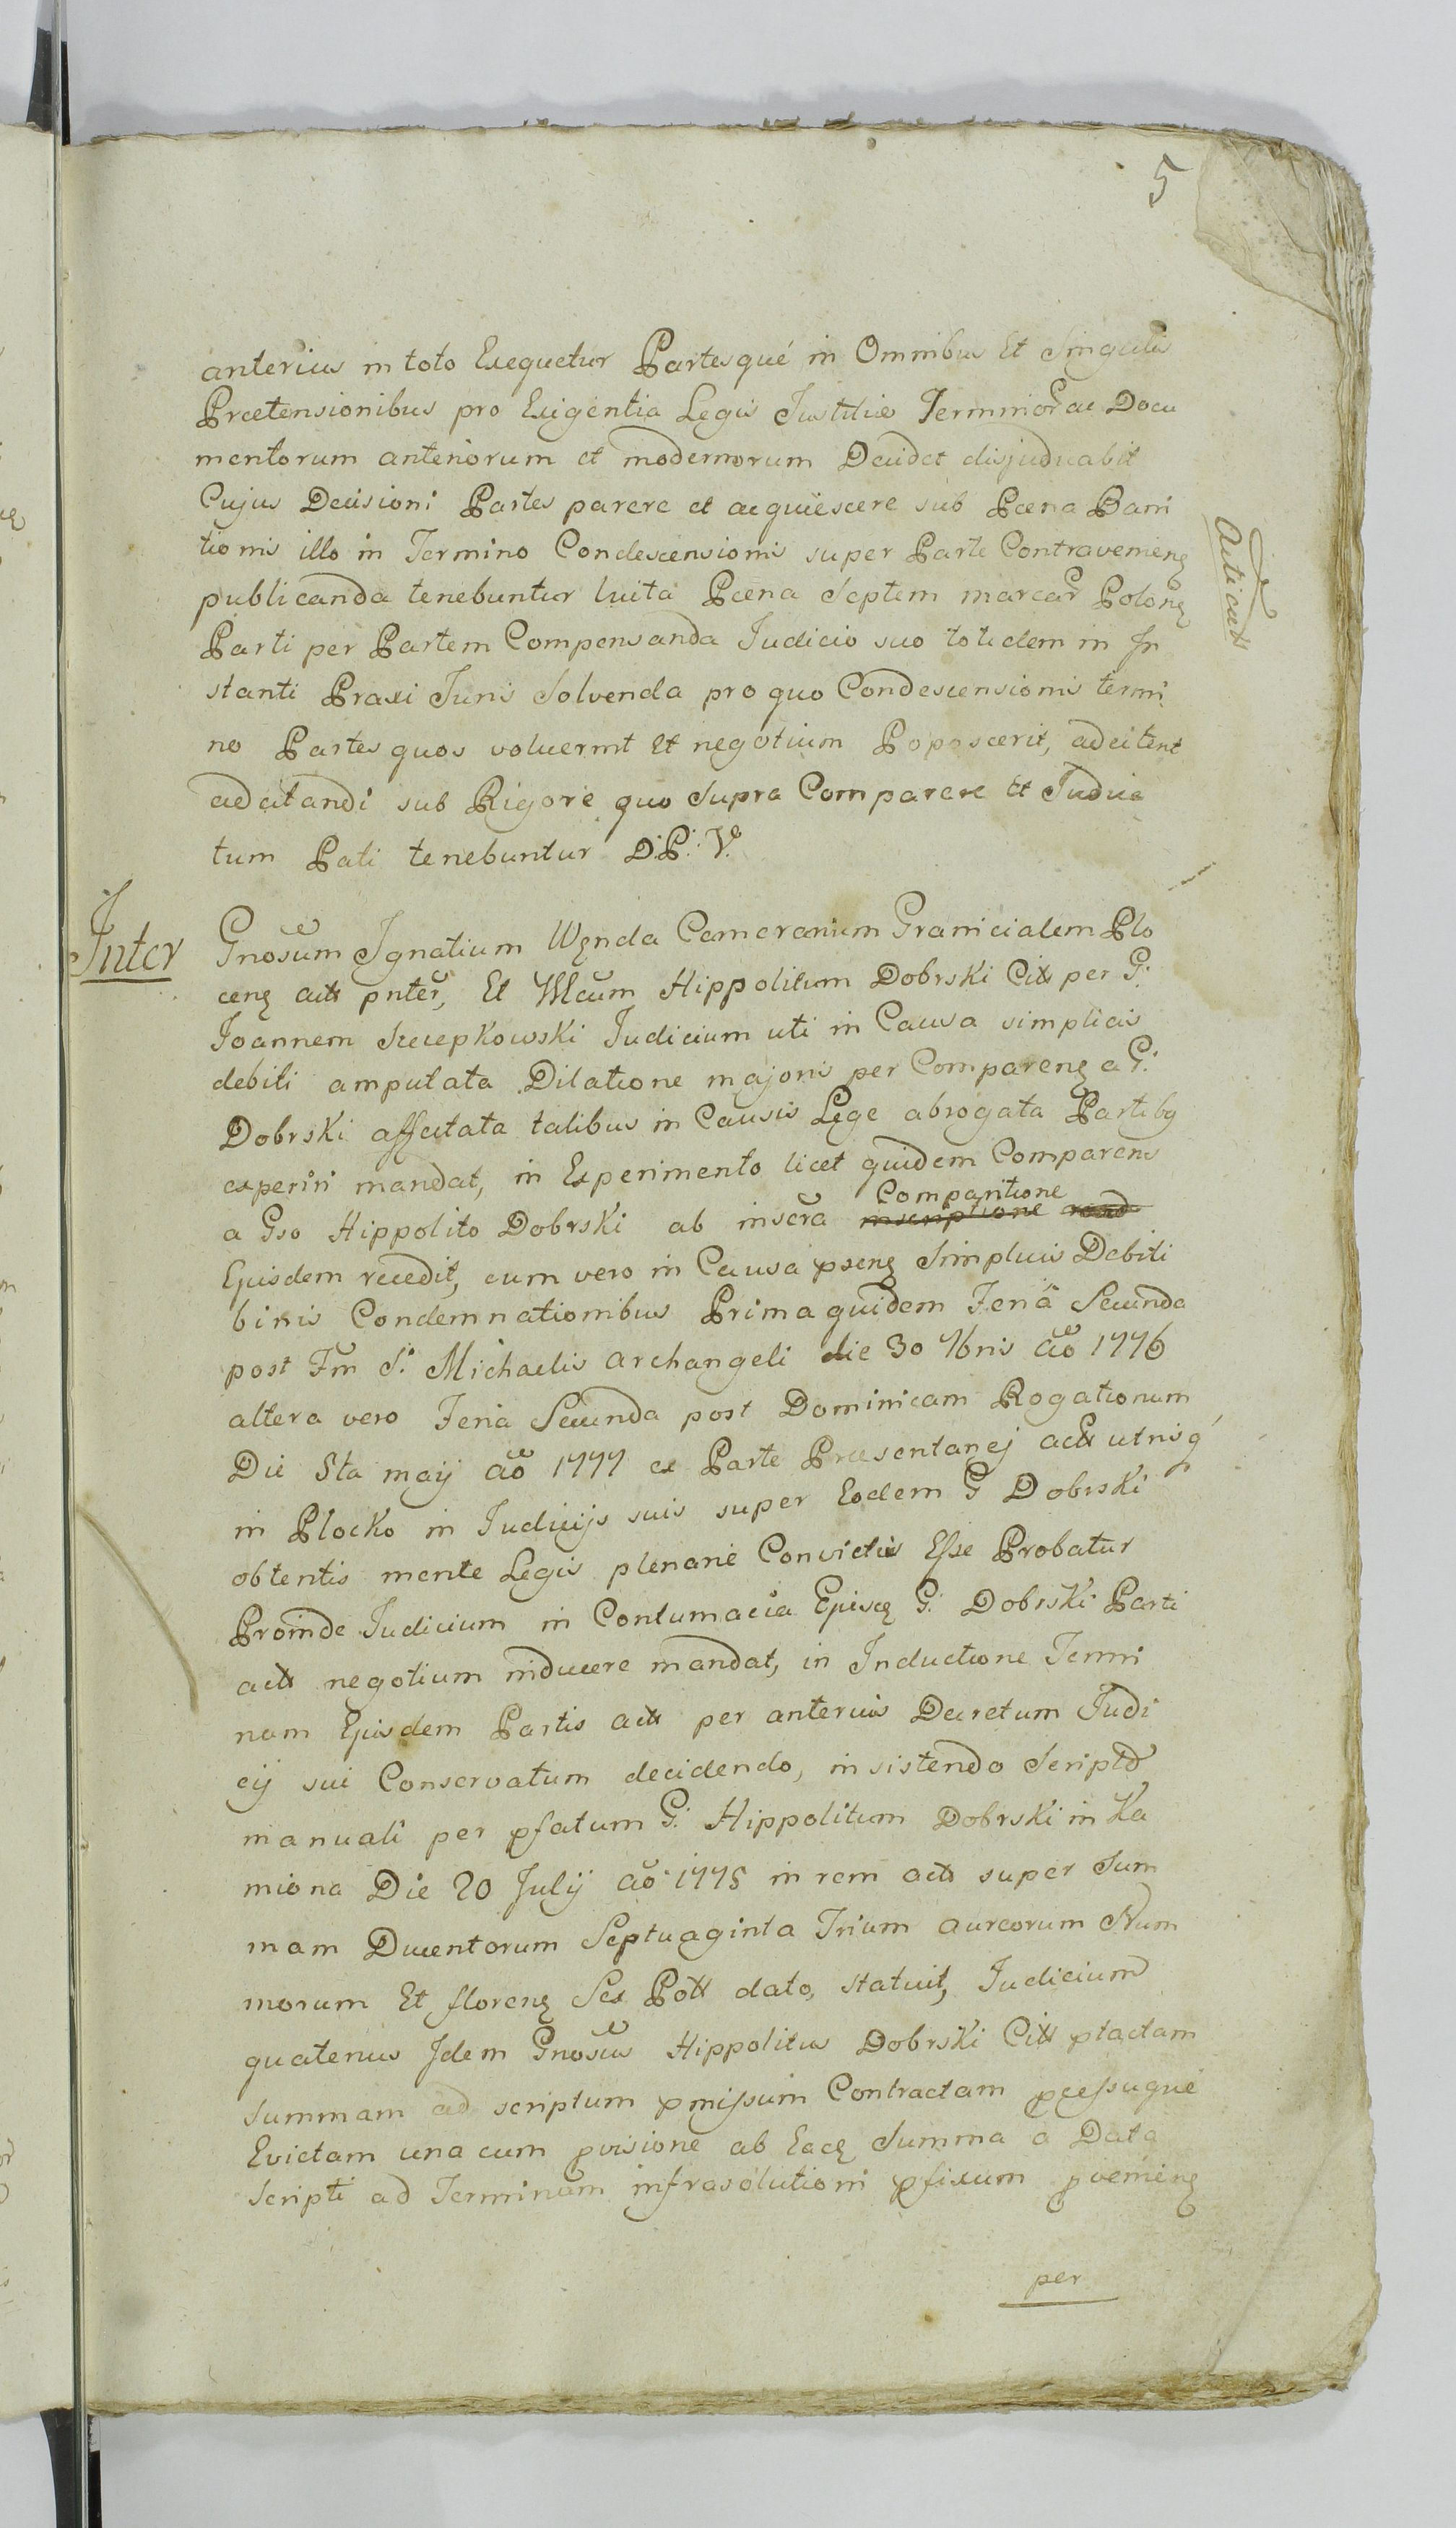 5
anterius in toto Exequetur Partesqué in Omnibus Et Singulis
Praetensionibus pro Exigentia Legis Justitiae Terminor ac Docu
mentorum anteriorum et modernorum Decidet disjudicabit
Cujus Decisioni Partes parere et acquiescere sub Poena Bani
tionis illo in Termino Condescensionis super Parte Contravenieng
publicanda tenebuntur luita Poena Septem marcar Polong
Parti per Partem Compensanda Judicio suo totidem in In
stanti Praxi Juris Solvenda pro quo Condescensionis termi
no Partes quos voluerint Et negotium Poposcerit, adcitent
adcitandi sub Rigore quo Supra Comparere Et Judica
tum Pati tenebuntur D.P. V.
Inter
Gnosum Ignatium Węnda Camerarium Granicialem Plo
ceng actt pnter, Et Mcum Hippolitum Dobrski Citt per G:
Joannem Szczepkowski Judicium uti in Causa simplicis
debiti amputata Dilatione majoris per Compareng a G:
Dobrski affectata talibus in Causis Lege abrogata Partibg
experiri mandat, in Experimento licet quidem Comparens
a Gso Hippolito Dobrski ab inscra Comparitione inscriptione
Ejusdem recedit, cum vero in Causa pseng Simplicis Debiti
binis Condemnationibus Prima quidem Feria Secunda
post Fm S. Michaelis archangeli die 30 7bris ao 1776
altera vero Feria Secunda post Dominicam Rogationum
Die 5ta maij ao 1777 ex Parte Praesentanej actt utrisq
in Plocko in Judicijs suis super Eodem G Dobrski
obtentis mente Legis plenarie Convictus Esse Probatur
Proinde Judicium in Contumacia Ejusdę G: Dobrski Parti
actt negotium inducere mandat, in Inductione Termi
num Ejusdem Partis actt per anterius Decretum Judi
cij sui Conservatum decidendo, insistendo Script
manuali per pfatum G: Hippolitum Dobrski in Ka
miona Die 20 Julij ao 1775 in rem actt super Sum
mam Ducentorum Septuaginta Trium aureorum Num
morum Et floreng Sex Pott dato, statuit, Judicium
quatenus Idem Gnosus Hippolitus Dobrski Citt ptactam
summam ad scriptum pmissum Contractam pcessuque
Evictam una cum pvisione ab Eadę Summa a Data
Scripti ad Terminum infrasolutioni pfixum pvenieng
per